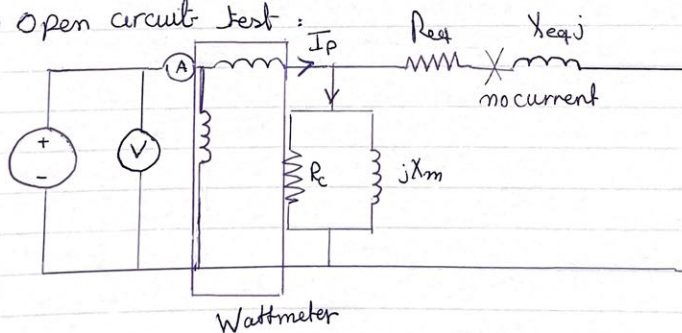 Open circuit test :
Ip
Req
Xeqj
A
no current
+
-
V
Rc
jXm
Wattmeter